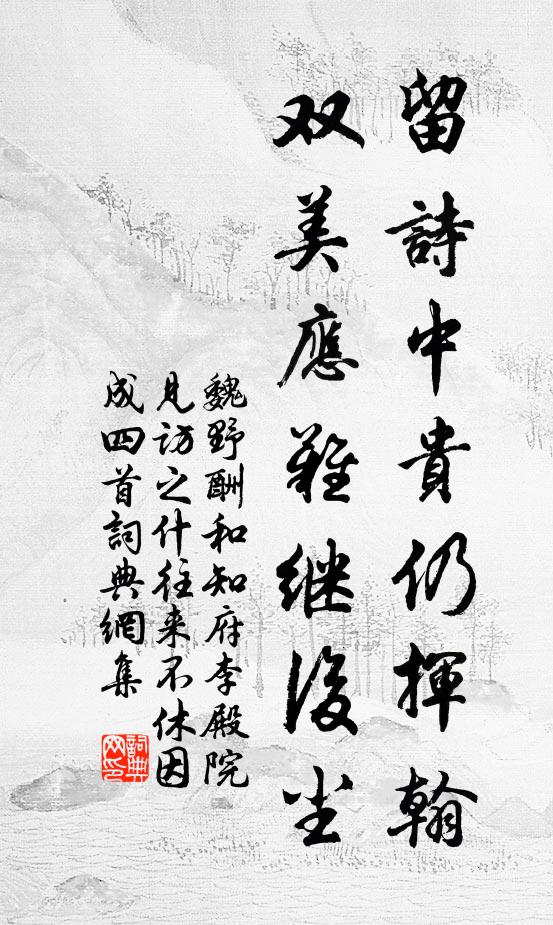 留詩中貴仍揮翰
双美應難继後尘
魏野酬和知府李殿院
见访之什往来不休因
成四首詞典網集
詞典
网印